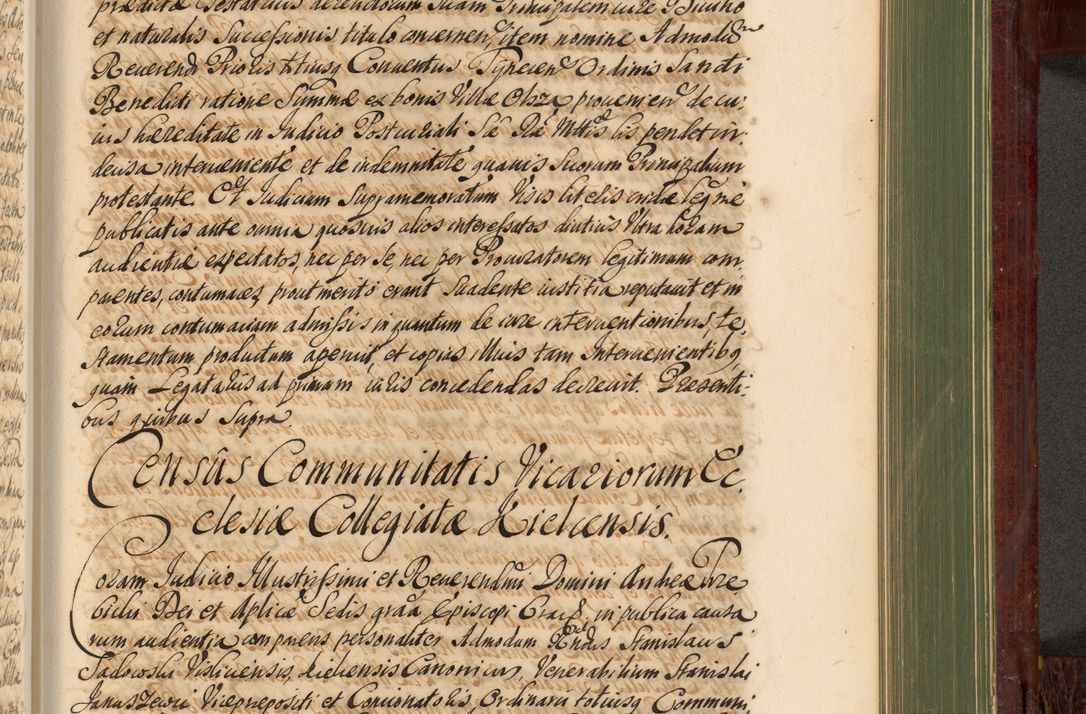 prædictæ Testatricis aereditorum suam Principalem iure
et naturalis Successionis titulo concernen. item nomine Admodũ
Reuerendi Prioris totiusq Conuentus Tynecien. Ordinis Sancti
Benedicti ratione Summæ ex bonis Villæ Olsza prouenien. de cu:
ius hæreditate in Iudicio Postcuriali Sæ Ræ Mttis lis pendet in:
decisa interueniente et de indemnitate quauis Suorum Principalium
protestante. Et Iudicium Supramemoratum Visis litelis cridæ legitime
publicatis ante omnia quosuis alios interessatos diutius Vltra horam
audientiæ expectatos, nec per se, nec per Procuratorem legitimum com,
parentes, contumaces prout merito erant Suadente iustitia reputauit et in
eorum contumaciam admissis in quantum de iure interuentionibus, te,
stamentum productum aperuit, et copias illius tam Interuenientibq
quam Legatariis ad primam iuris concedendas decreuit. Præsenti,
bus quibus supra.
Census Communitatis Vicariorum Ec,
clesiæ Collegiatæ Kielcensis.
Coram Iudicio Illustrissimi et Reuerendissimi Domini Andreæ Trze
bicki Dei et Aplicæ Sedis graã Episcopi Crac. in publica causa
rum audientia comparens personaliter Admodum Rndus Stanislaus
Sadowski Visliciensis, Kielcensis Canonicus, Venerabilium Stanislai
Januszewic Vicepræpositi et Concionatoris, Ordinarii totiusq Communi,